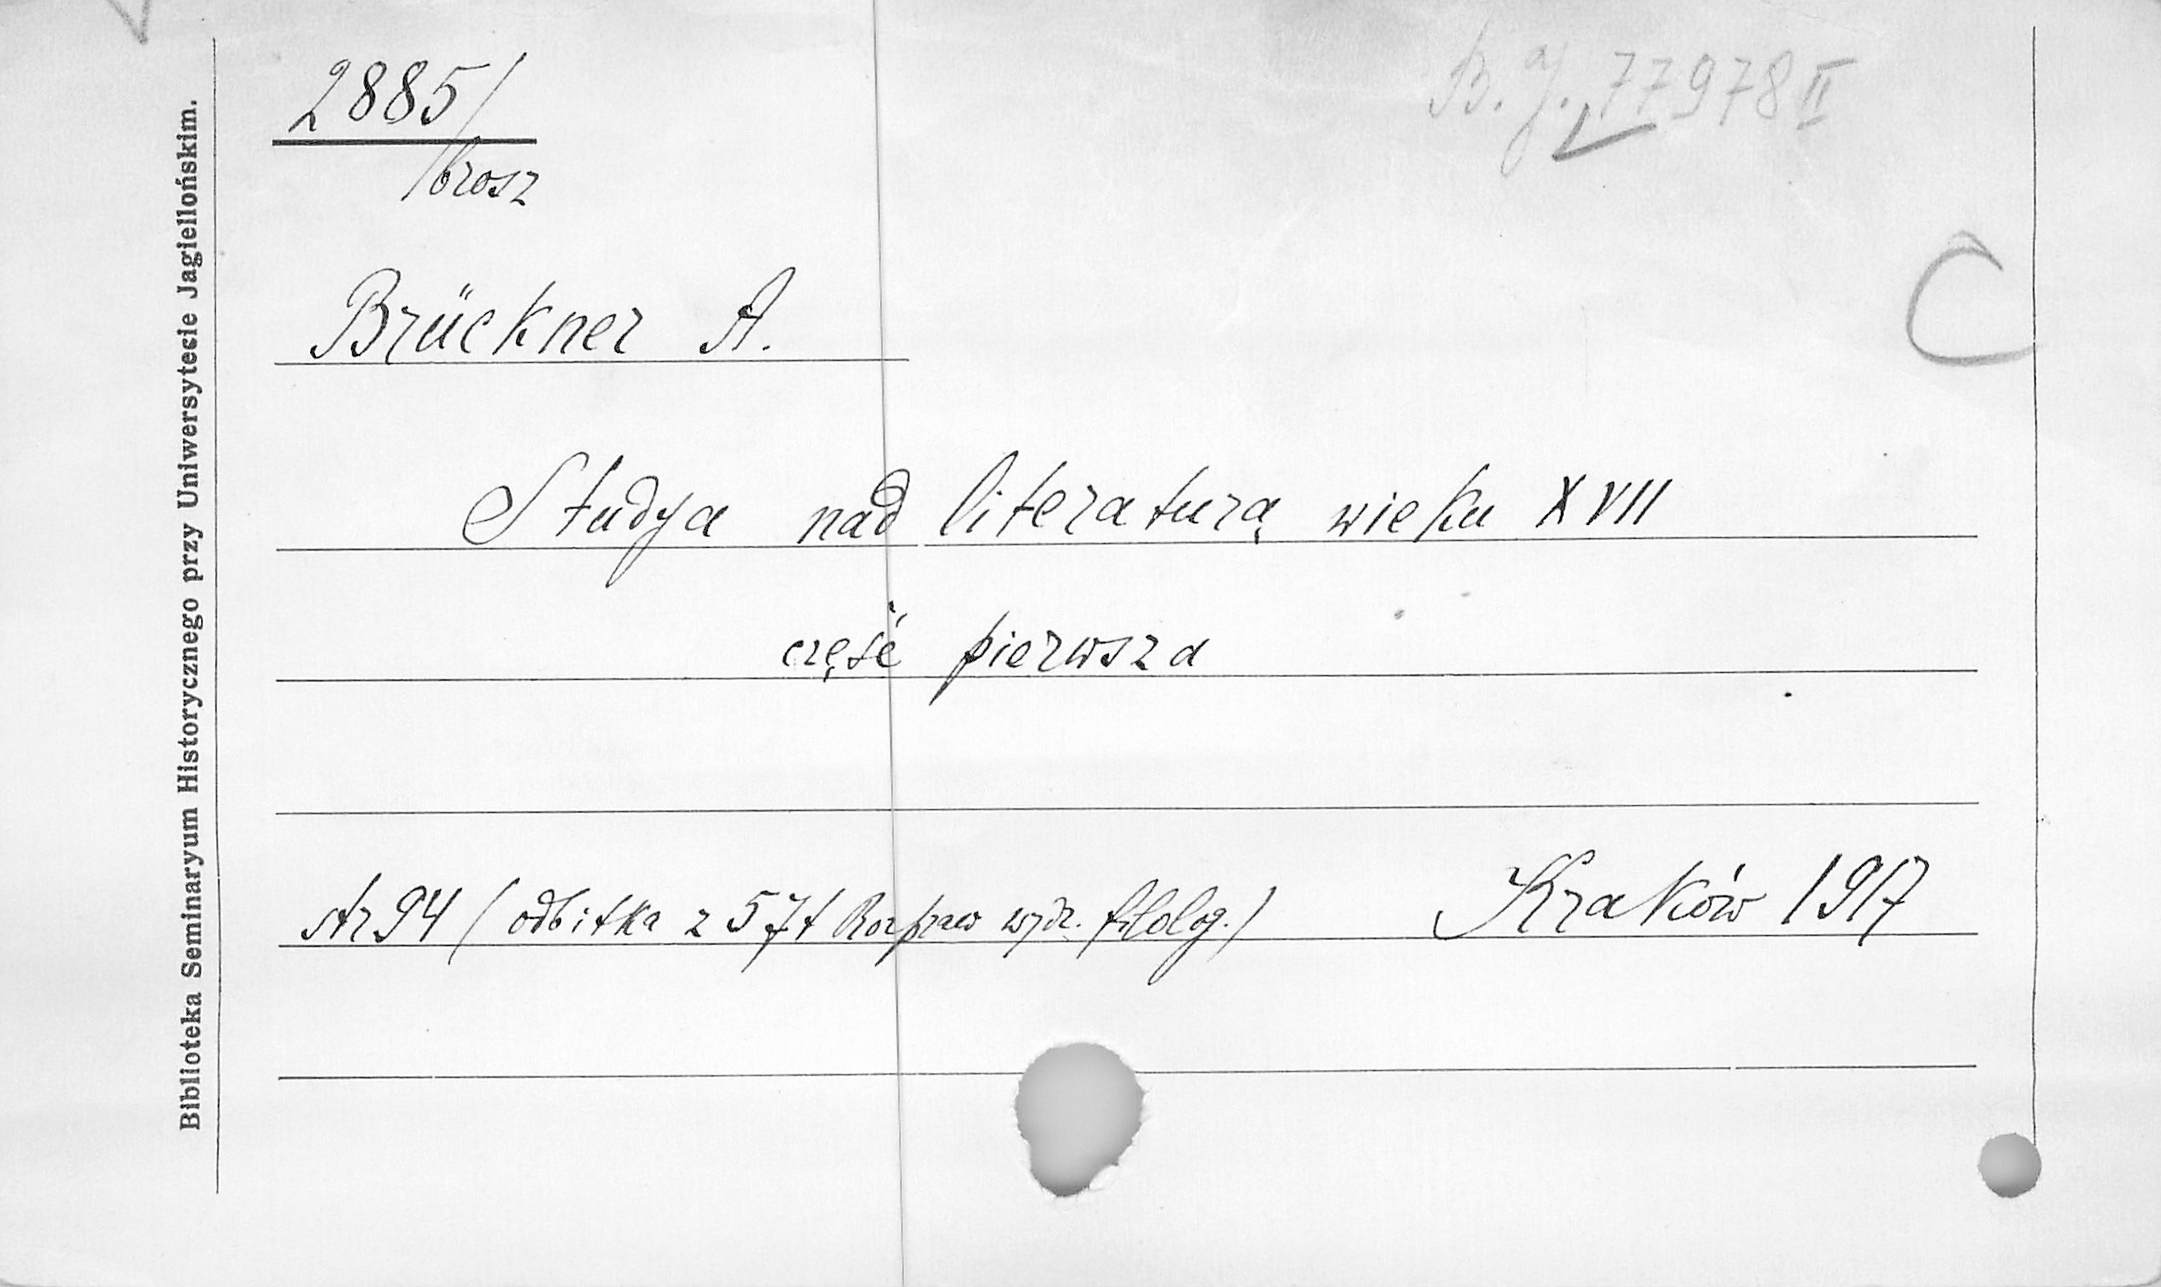 2885/
B. J. 77978 II
/brosz
Biblioteka Seminaryum Historycznego przy Uniwersytecie Jagiellońskim.
C
Brückner A.
Studya nad literaturą wieku XVII
część pierwsza
str 94 (odbitka z 57 t Rozpraw wydz. filolog.) Kraków 1917